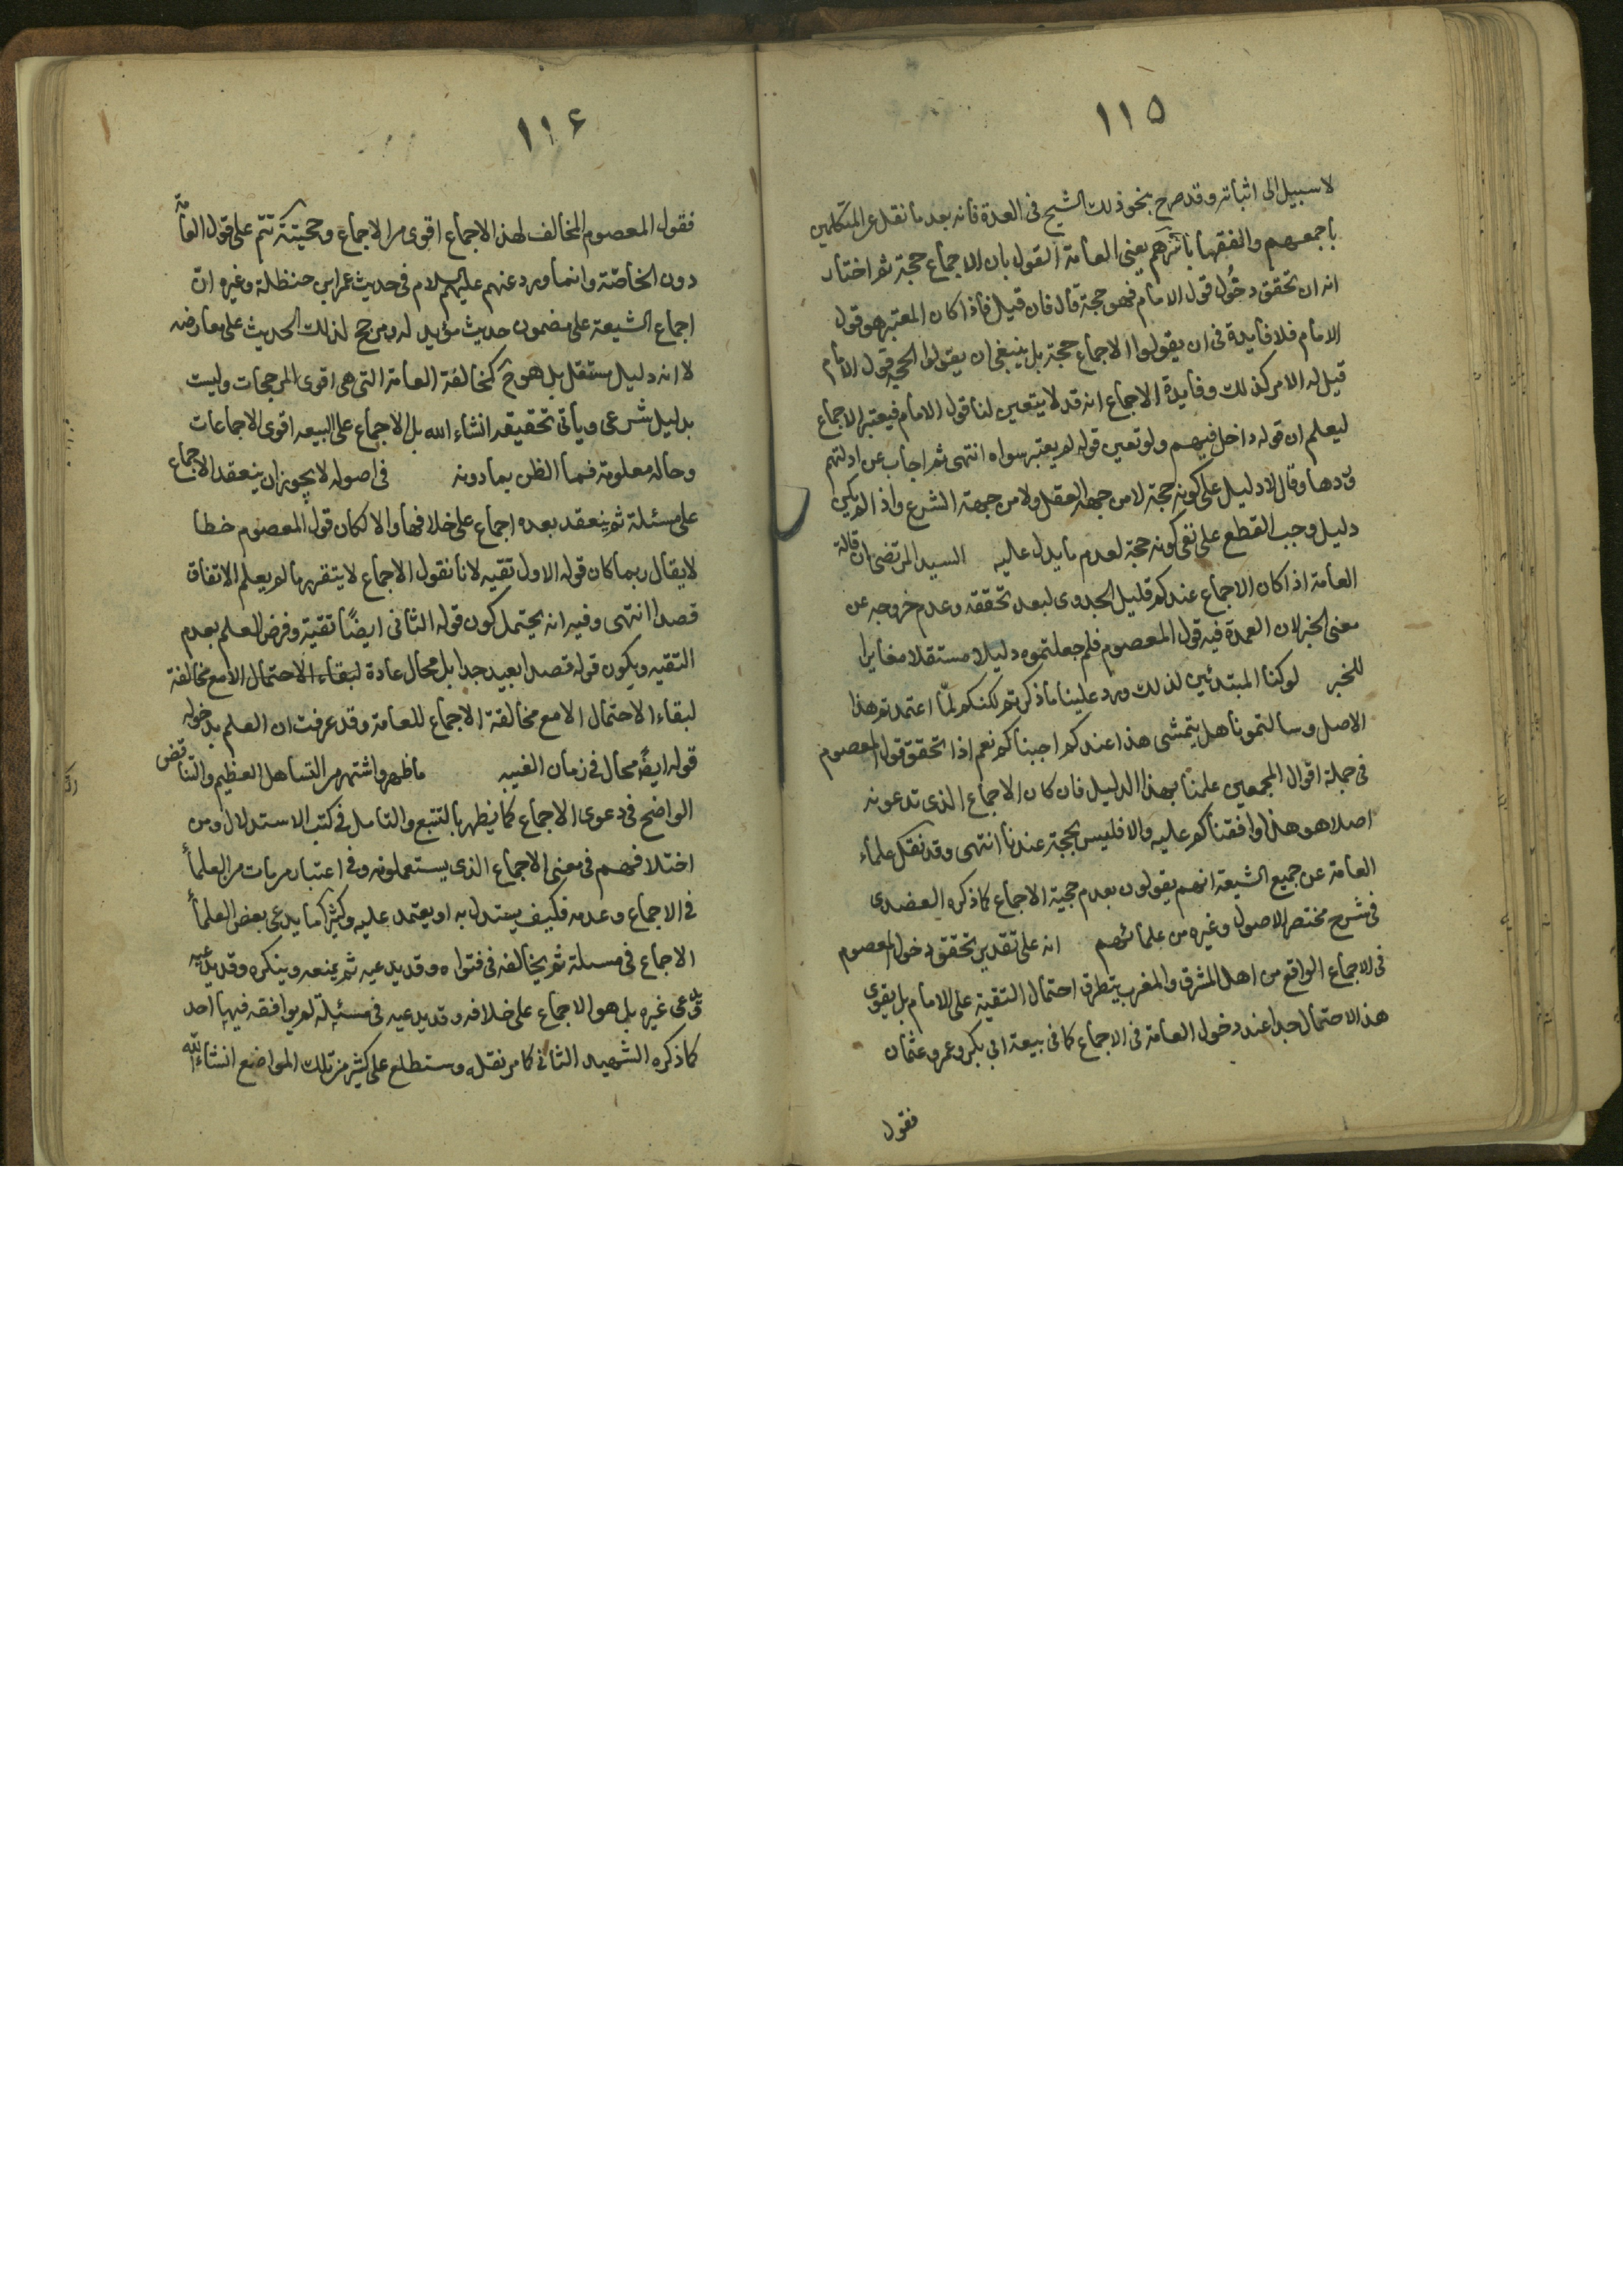 ١١٥
لا سبيل الى اثباته وقد صرح بنحو ذلك الشيخ فى العدة فانه بعد ما نقل عن المتكلمين
باجمعهم والفقها باسرهم يعنى العامة القول بان الاجماع حجة ثم اختار
انه ان تحقق دخول قول الامام فهو حجة قال فان قيل فاذا كان المعتبر هو قول
الامام فلا فايدة فى ان يقولوا الاجماع حجة بل ينبغى ان يقولوا الحجة قول الامام
قيل له الامر كذلك وفايدة الاجماع انه قد لا يتعين لنا قول الامام فيعتبر الاجماع
ليعلم ان قوله داخل فيهم ولو تعين قوله لم يعتبر سواه انتهى ثم اجاب عن ادلتهم
وردها وقال لا دليل على كونه حجة لا من جهة العقل ولا من جهة الشرع واذا لم يكن
دليل وجب القطع على نفى كونه حجة لعدم ما يدل عليه السيد المرتضى ان قالة
العامة اذا كان الاجماع عندكم قليل الجدوى لبعد تحققه وعدم خروجه عن
معنى الخبر لان العمدة فيه قول المعصوم فلم جعلتموه دليلا مستقلا مغايرا
للخبر لو كنا المبتدئين لذلك ورد علينا ما ذكرتم لكنكم لمّا اعتمدتم هذا
الاصل وسالتمونا هل يتمشى هذا عندكم اجبناكم نعم اذا تحقق قول المعصوم
فى جملة اقوال المجمعين علمنا بهذا الدليل فان كان الاجماع الذى تدعونه
اصلا هو هذا وافقناكم عليه والا فليس بحجة عندنا انتهى وقد نقل علماء
العامة عن جميع الشيعة انهم يقولون بعدم حجية الاجماع كما ذكره العضدى
فى شرح مختصر الاصول وغيره من علمائهم انه على تقدير تحقق دخول المعصوم
فى الاجماع الواقع من اهل المشرق والمغرب يتطرق احتمال التقية على الامام بل يقوى
هذا الاحتمال جدا عند دخول العامة فى الاجماع كما فى بيعة ابى بكر وعمر وعثمان
فقول
١١۶
فقول المعصوم المخالف لهذا الاجماع اقوى من الاجماع وحجيته تتم على قول العامة
دون الخاصّة وانما ورد عنهم عليهم السلام فى حديث عمر ابن حنظلة وغيره انّ
اجماع الشيعة على مضمون حديث مؤيد له ومرجح لذلك الحديث على معارضه
لا انه دليل مستقل بل هو ح كمخالفة العامة التى هى اقوى المرجحات وليست
بدليل شرعى وياتى تحقيقه انشاء الله بل الاجماع على البيعه اقوى الاجماعات
وحاله معلومة فما الظن بما دونه فى اصوله لا يجوز ان ينعقد الاجماع
على مسئلة ثم ينعقد بعده اجماع على خلافها والا لكان قول المعصوم خطا
لا يقال ربما كان قوله الاول تقيه لانا نقول الاجماع لا يتقرر ما لم يعلم الاتفاق
قصدا انتهى وفيه انه يحتمل كون قوله الثانى ايضًا تقية وفرض العلم بعدم
التقيه ويكون قوله قصدا بعيد جدا بل محال عادة لبقاء الاحتمال الا مع مخالفة
لبقاء الاحتمال الا مع مخالفة الاجماع للعامة وقد عرفت ان العلم بدخول
قوله ايضًا محال فى زمان الغيبه ما ظهر واشتهر من التساهل العظيم والتناقض
الواضح فى دعوى الاجماع كما يظهر بالتتبع والتامل فى كتب الاستدلال ومن
اختلافهم فى معنى الاجماع الذى يستعملونه وفى اعتبار من مات من العلماء
فى الاجماع وعدمه فكيف يستدل به او يعتمد عليه وكثيرا ما يدعى بعض العلماء
الاجماع فى مسئلة ثم يخالفه فى فتواه وقد يدعيه ثم يمنعه وينكره وقد يدعيه
ويدعى غيره بل هو الاجماع على خلافه وقد يدعيه فى مسئلة لم يوافقه فيها احد
كما ذكره الشهيد الثانى كما مر نقله وستطلع على كثير من تلك المواضع انشاء الله